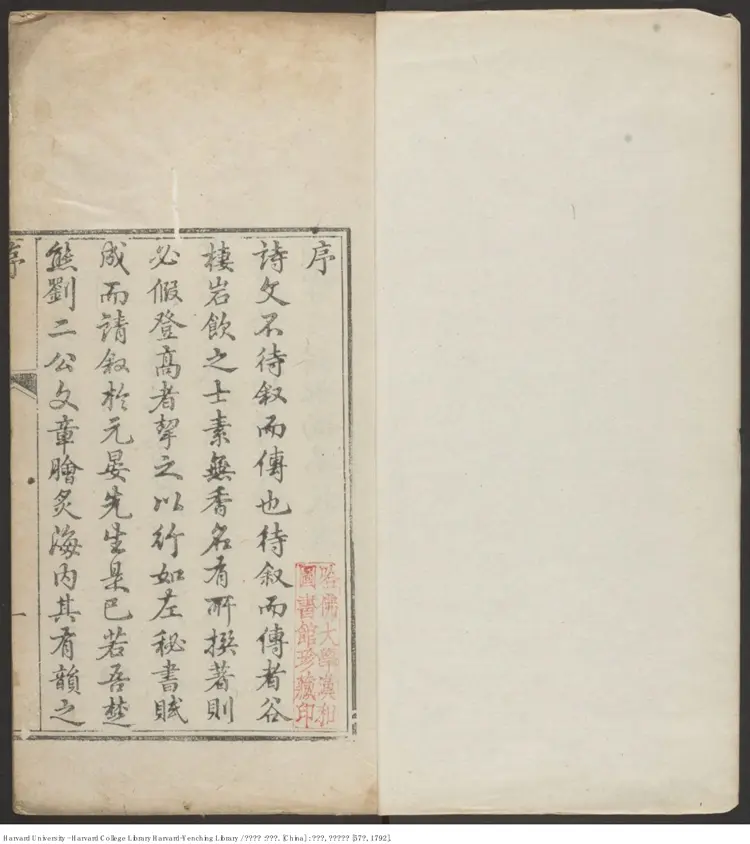 序
詩文不待叙而傳也待叙而傳者谷
棲岩飲之士素無香名有所撰著則
必假登高者挈之以行如左秘書賦
成而請叙於元晏先生是已若吾楚
熊劉二公文章膾炙海内其有韻之
序
一
哈佛大學漢和
圖書館珍藏印
Harvard University - Harvard College Library Harvard-Yenching Library / ???? : ???. [China] : ???, ????? [57?, 1792].